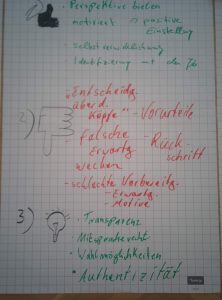 • Perspektive bieten
motiviert → positive
Einstellung
selbstverwirklichung
Identifizierung mit dem Job
"Entscheidg.
über d.
Köpfe" - Vorurteile
2)
falsche - Rück
Erwartg. schritt
wecken
- schlechte Vorbereitg.
- Erwartg.
- Motive
3)
• Transparenz
• Mitspracherecht
• Wahlmöglichkeiten
• Authentizität